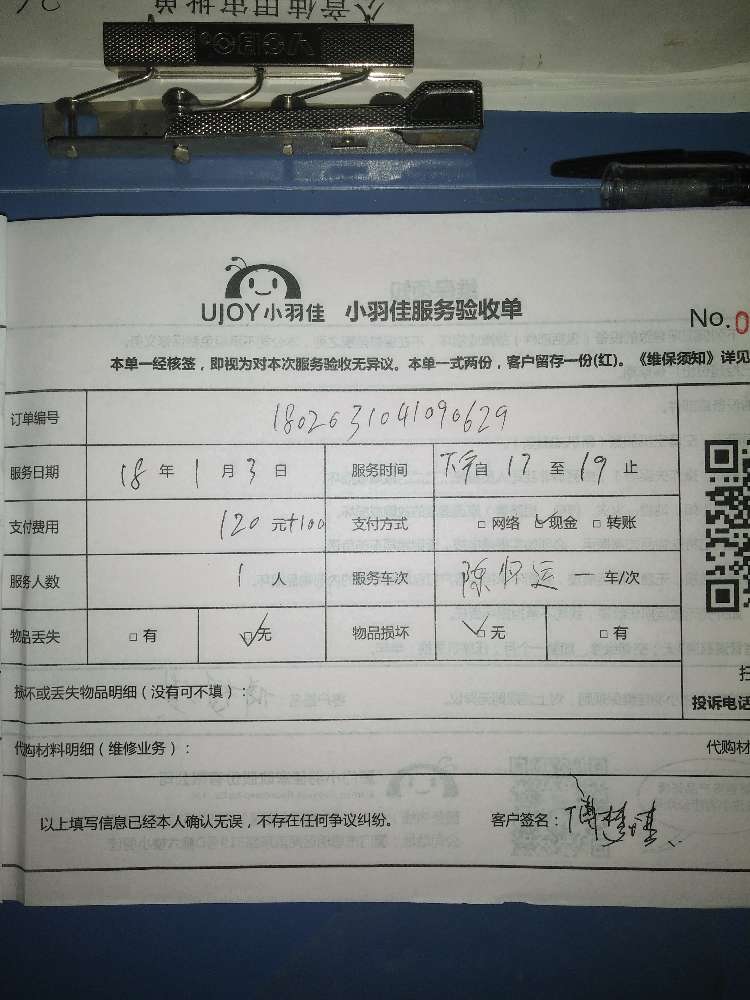 公章使用审批单
UJOY小羽佳 小羽佳服务验收单
No.0
本单一经核签，即视为对本次服务验收无异议。本单一式两份，客户留存一份(红)。《维保须知》详见
订单编号 1802631041090629
服务日期 18 年 1 月 3 日 服务时间 下午自 17 至 19 止
支付费用 120 元+100 支付方式 □ 网络 ☑ 现金 □ 转账
服务人数 1 人 服务车次 陈怀运 一 车/次
物品丢失 □ 有 ☑ 无 物品损坏 ☑ 无 □ 有
损坏或丢失物品明细（没有可不填）：
投诉电话
代购材料明细（维修业务）： 代购材
以上填写信息已经本人确认无误，不存在任何争议纠纷。 客户签名：